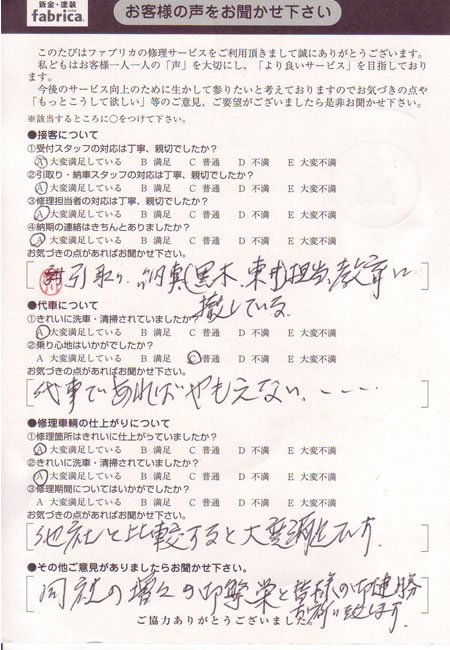 鈑金・塗装
fabrica.
お客様の声をお聞かせ下さい
このたびはファブリカの修理サービスをご利用頂きまして誠にありがとうございます。
私どもはお客様一人一人の「声」を大切にし、「より良いサービス」を目指しております。
今後のサービス向上のために生かして参りたいと考えておりますのでお気づきの点や
「もっとこうして欲しい」等のご意見、ご要望がございましたら是非お聞かせ下さい。
※該当するところに○をつけて下さい。
●接客について
①受付スタッフの対応は丁寧、親切でしたか?
A 大変満足している B 満足 C 普通 D 不満 E 大変不満
②引取り・納車スタッフの対応は丁寧、親切でしたか?
A 大変満足している B 満足 C 普通 D 不満 E 大変不満
③修理担当者の対応は丁寧、親切でしたか?
A 大変満足している B 満足 C 普通 D 不満 E 大変不満
④納期の連絡はきちんとありましたか?
A 大変満足している B 満足 C 普通 D 不満 E 大変不満
お気づきの点があればお聞かせ下さい。
引取り、納車(黒木、東井)担当、教育に
徹している。
●代車について
①きれいに洗車・清掃されていましたか?
A 大変満足している B 満足 C 普通 D 不満 E 大変不満
②乗り心地はいかがでしたか?
A 大変満足している B 満足 C 普通 D 不満 E 大変不満
お気づきの点があればお聞かせ下さい。
代車であればやもえない、----
●修理車輌の仕上がりについて
①修理箇所はきれいに仕上がっていましたか?
A 大変満足している B 満足 C 普通 D 不満 E 大変不満
②きれいに洗車・清掃されていましたか?
A 大変満足している B 満足 C 普通 D 不満 E 大変不満
③修理期間についてはいかがでしたか?
A 大変満足している B 満足 C 普通 D 不満 E 大変不満
お気づきの点があればお聞かせ下さい。
他社と比較すると大変満足です。
●その他ご意見がありましたらお聞かせ下さい。
同社の増々の御繁栄と皆様の御健勝
お祈り致します。
ご協力ありがとうございました。